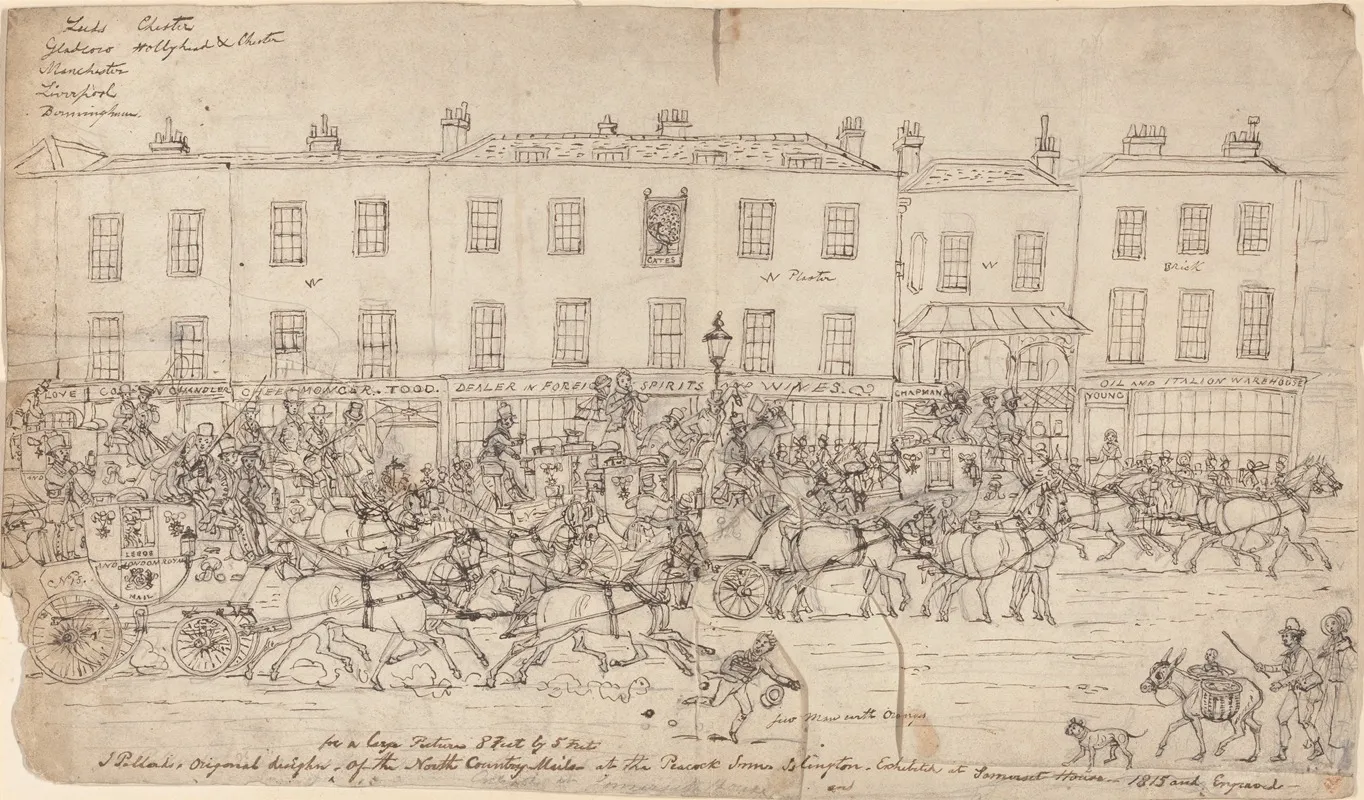 Leeds Chester
Glascow Hollyhead & Chester
Manchester
Liverpool
Birmingham
GATES
W
W Plaster
W
Brick
LOVE
CO
N CHANDLER
CHEESEMONGER. TODD.
DEALER IN FOREIG SPIRITS AND WINES.
CHAPMAN
OIL AND ITALION WAREHOUSE
YOUNG
AND
LEEDS
AND LONDON ROYAL
MAIL
No 78.
Jew Man with Oranges
for a large Picture 8 Feet by 5 Feet
J Pollards. Origonal desighn. Of the North Country Mails at the Peacock Inn Islington. Exhibited at Somerset House 1815 and Engraved
and